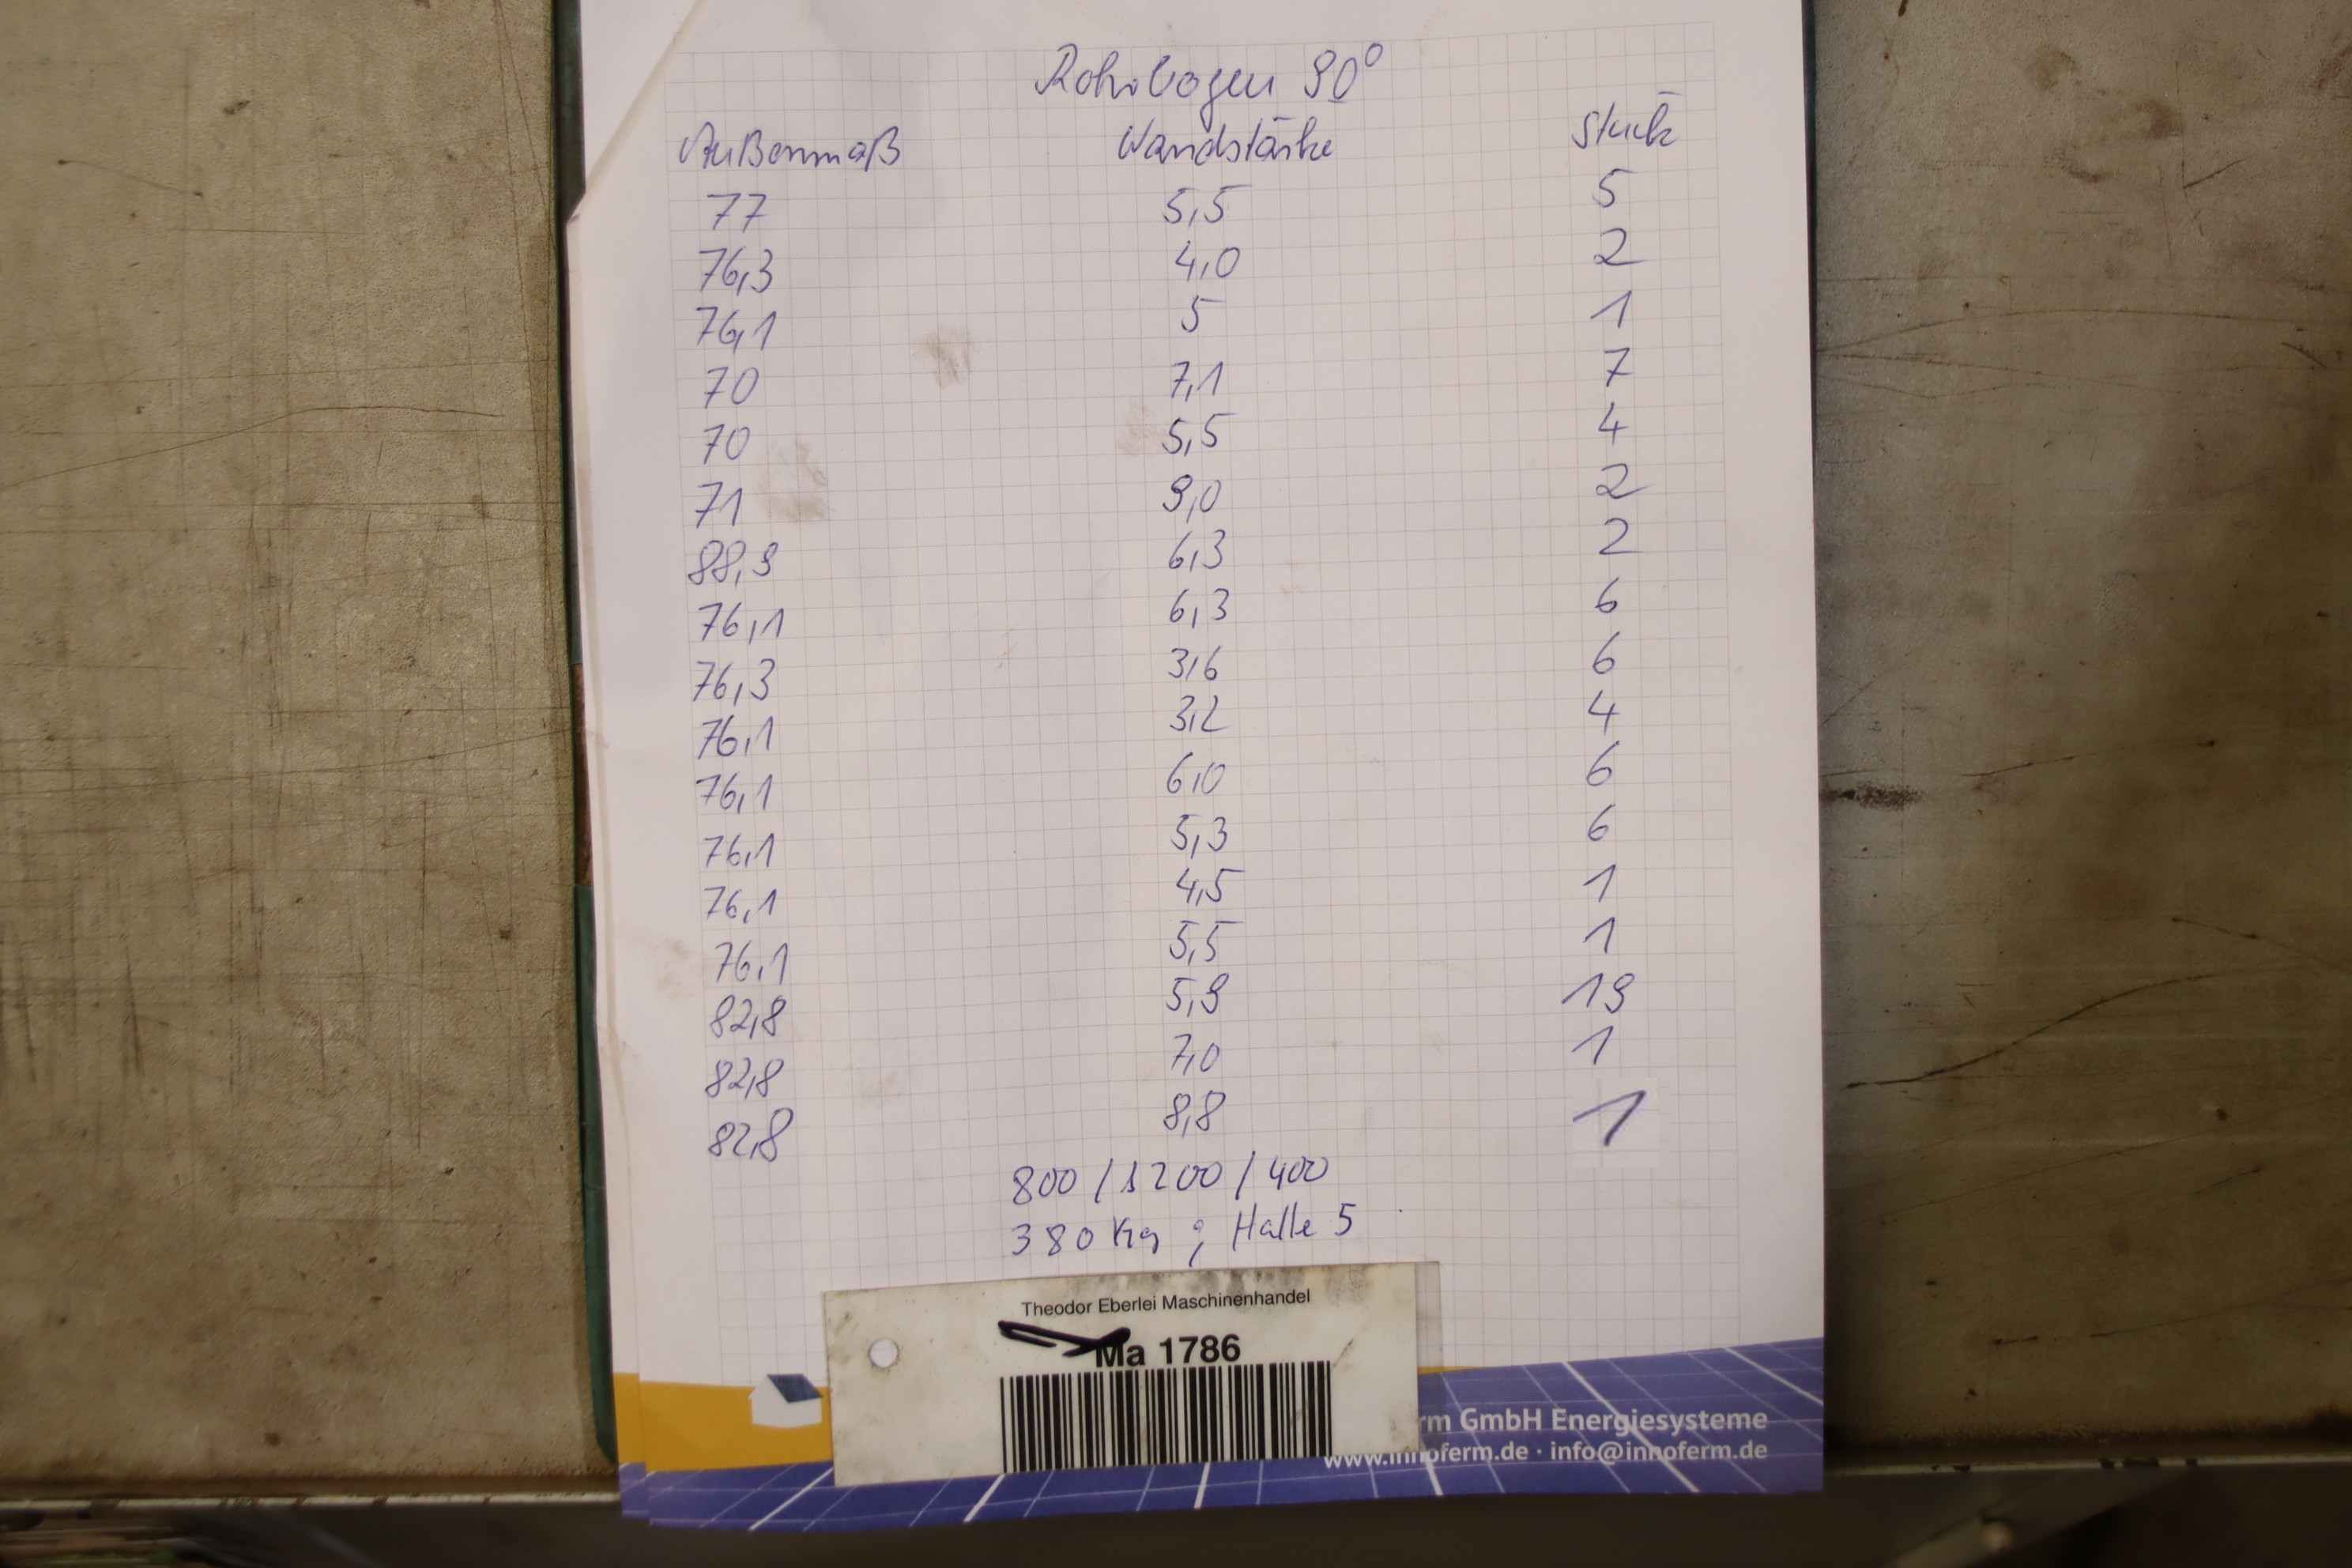 Rohrbogen 90°
Außenmaß Wandstärke Stück
77 5,5 5
76,3 4,0 2
76,1 5 1
70 7,1 7
70 5,5 4
71 9,0 2
88,9 6,3 2
76,1 6,3 6
76,3 3,6 6
76,1 3,2 4
76,1 6,0 6
76,1 5,3 6
76,1 4,5 1
76,1 5,5 1
82,8 5,9 19
82,8 7,0 1
82,8 8,8 1
800 / 1200 / 400
380 Kg ; Halle 5
Theodor Eberlei Maschinenhandel
Ma 1786
rm GmbH Energiesysteme
www.innoferm.de · info@innoferm.de